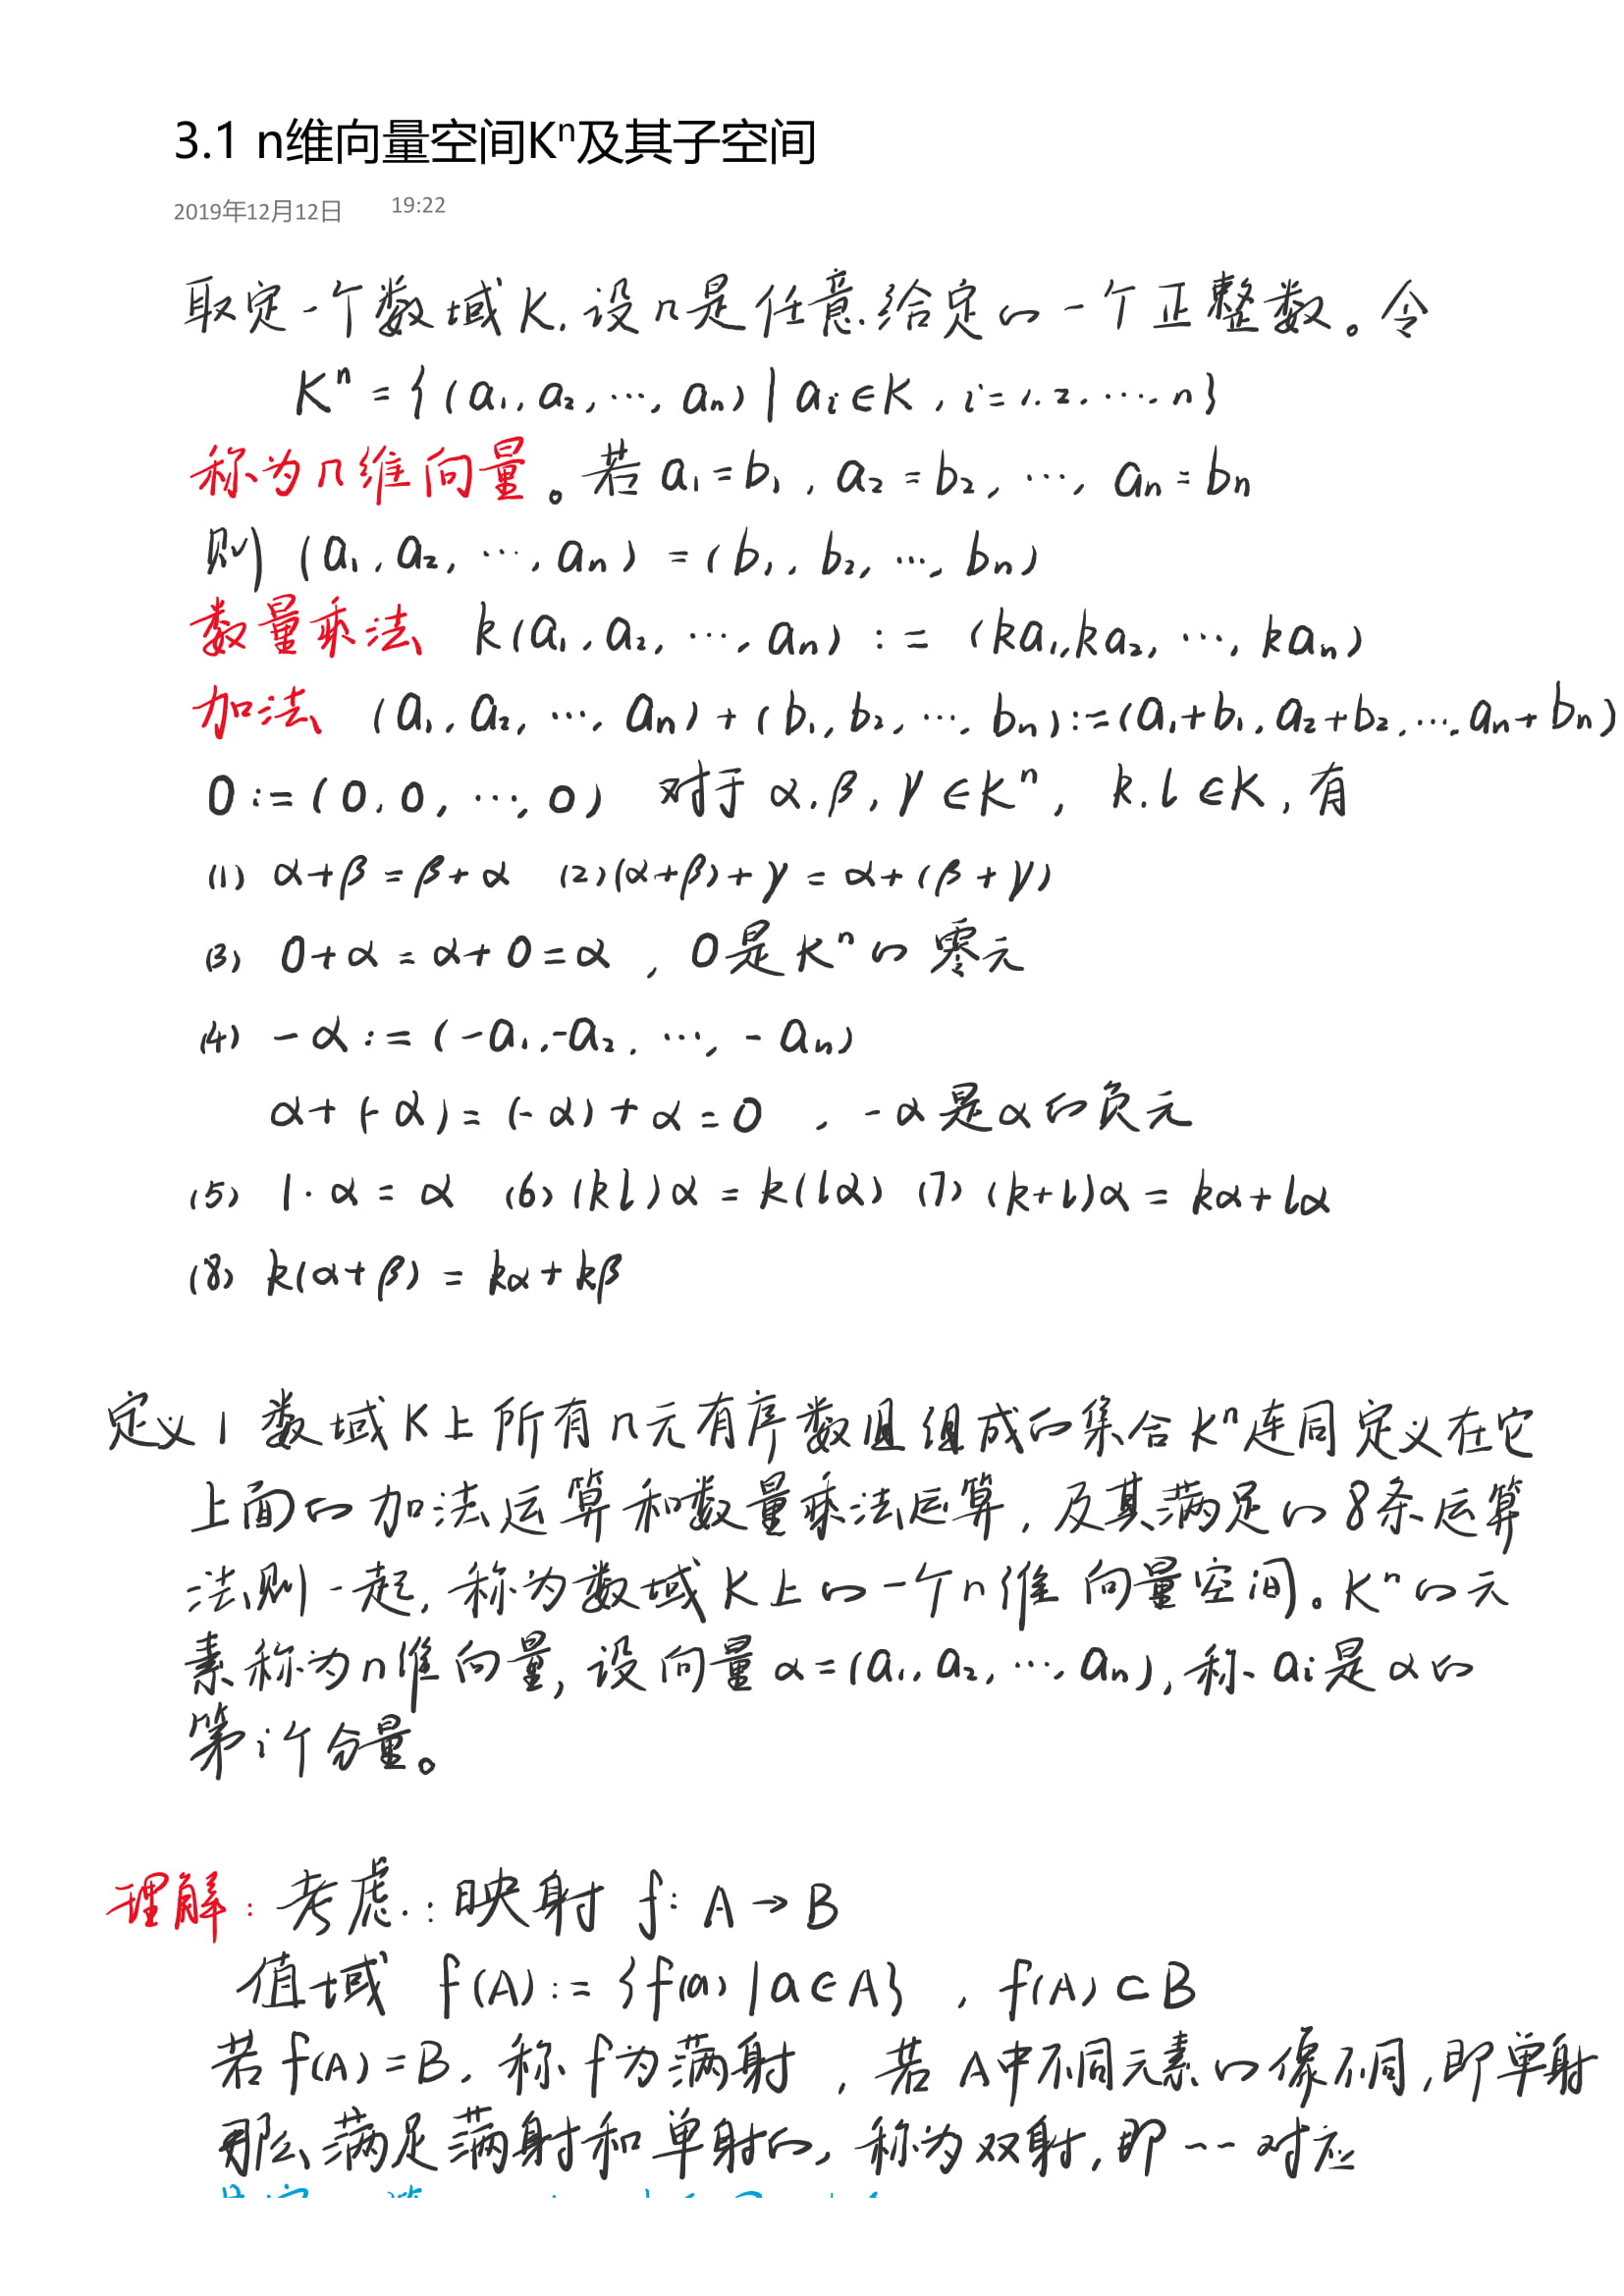 3.1 n维向量空间Kⁿ及其子空间
2019年12月12日 19:22
取定一个数域K.设n是任意给定的一个正整数。令
Kⁿ = {(a₁, a₂, …, aₙ) | aᵢ∈K, i=1.2.….n}
称为n维向量。若a₁=b₁, a₂=b₂, …, aₙ=bₙ
则 (a₁, a₂, …, aₙ) = (b₁, b₂, …, bₙ)
数量乘法 k(a₁, a₂, …, aₙ) := (ka₁, ka₂, …, kaₙ)
加法 (a₁, a₂, …, aₙ) + (b₁, b₂, …, bₙ) := (a₁+b₁, a₂+b₂, …, aₙ+bₙ)
0 := (0, 0, …, 0) 对于 α.β, γ∈Kⁿ, k.l∈K, 有
(1) α+β=β+α (2) (α+β)+γ = α+(β+γ)
(3) 0+α = α+0 = α , 0是Kⁿ的零元
(4) -α := (-a₁, -a₂. …, -aₙ)
α+(-α) = (-α)+α = 0 , -α是α的负元
(5) 1·α = α (6) (kl)α = k(lα) (7) (k+l)α = kα+lα
(8) k(α+β) = kα+kβ
定义1 数域K上所有n元有序数组组成的集合Kⁿ连同定义在它
上面的加法运算和数量乘法运算, 及其满足的8条运算
法则一起, 称为数域K上的一个n维向量空间。Kⁿ的元
素称为n维向量, 设向量α=(a₁, a₂, …, aₙ), 称aᵢ是α的
第i个分量。
理解: 考虑:映射 f: A→B
值域 f(A) := {f(a) | a∈A} , f(A)⊂B
若f(A)=B, 称f为满射 , 若A中不同元素的像不同, 即单射
那么满足满射和单射的, 称为双射, 即一一对应